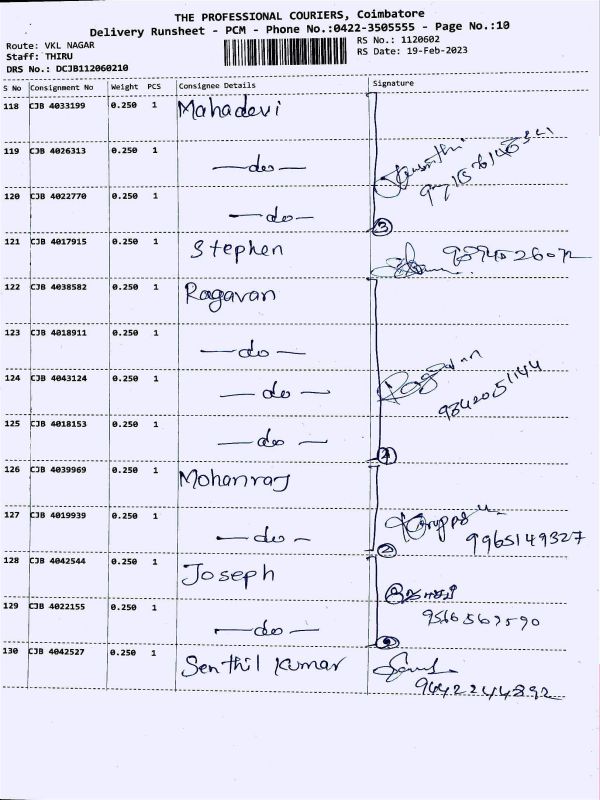 THE PROFESSIONAL COURIERS, Coimbatore
Delivery Runsheet - PCM - Phone No.:0422-3505555 - Page No.:10
Route: VKL NAGAR RS No.: 1120602
Staff: THIRU RS Date: 19-Feb-2023
DRS No.: DCJB112060210
S No Consignment No Weight PCS Consignee Details Signature
118 CJB 4033199 0.250 1 Mahadevi
119 CJB 4026313 0.250 1 —do—
120 CJB 4022770 0.250 1 —do— 3
121 CJB 4017915 0.250 1 Stephen
122 CJB 4038582 0.250 1 Ragavan
123 CJB 4018911 0.250 1 —do—
124 CJB 4043124 0.250 1 —do— Ragavan 9342051144
125 CJB 4018153 0.250 1 —do— 4
126 CJB 4039969 0.250 1 Mohanraj
127 CJB 4019939 0.250 1 —do— 2 9965149327
128 CJB 4042544 0.250 1 Joseph
129 CJB 4022155 0.250 1 —do— 9566567590
130 CJB 4042527 0.250 1 Senthil Kumar 9442244892